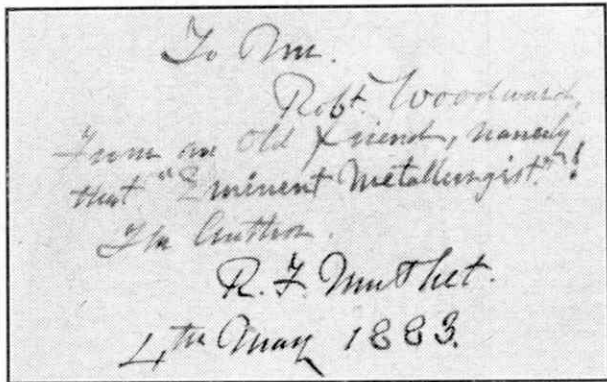 To Mr.
Robt. Woodward,
From an Old friend, namely
that "Eminent Metallurgist."!
The Author.
R. F. Mushet.
4th May 1883.